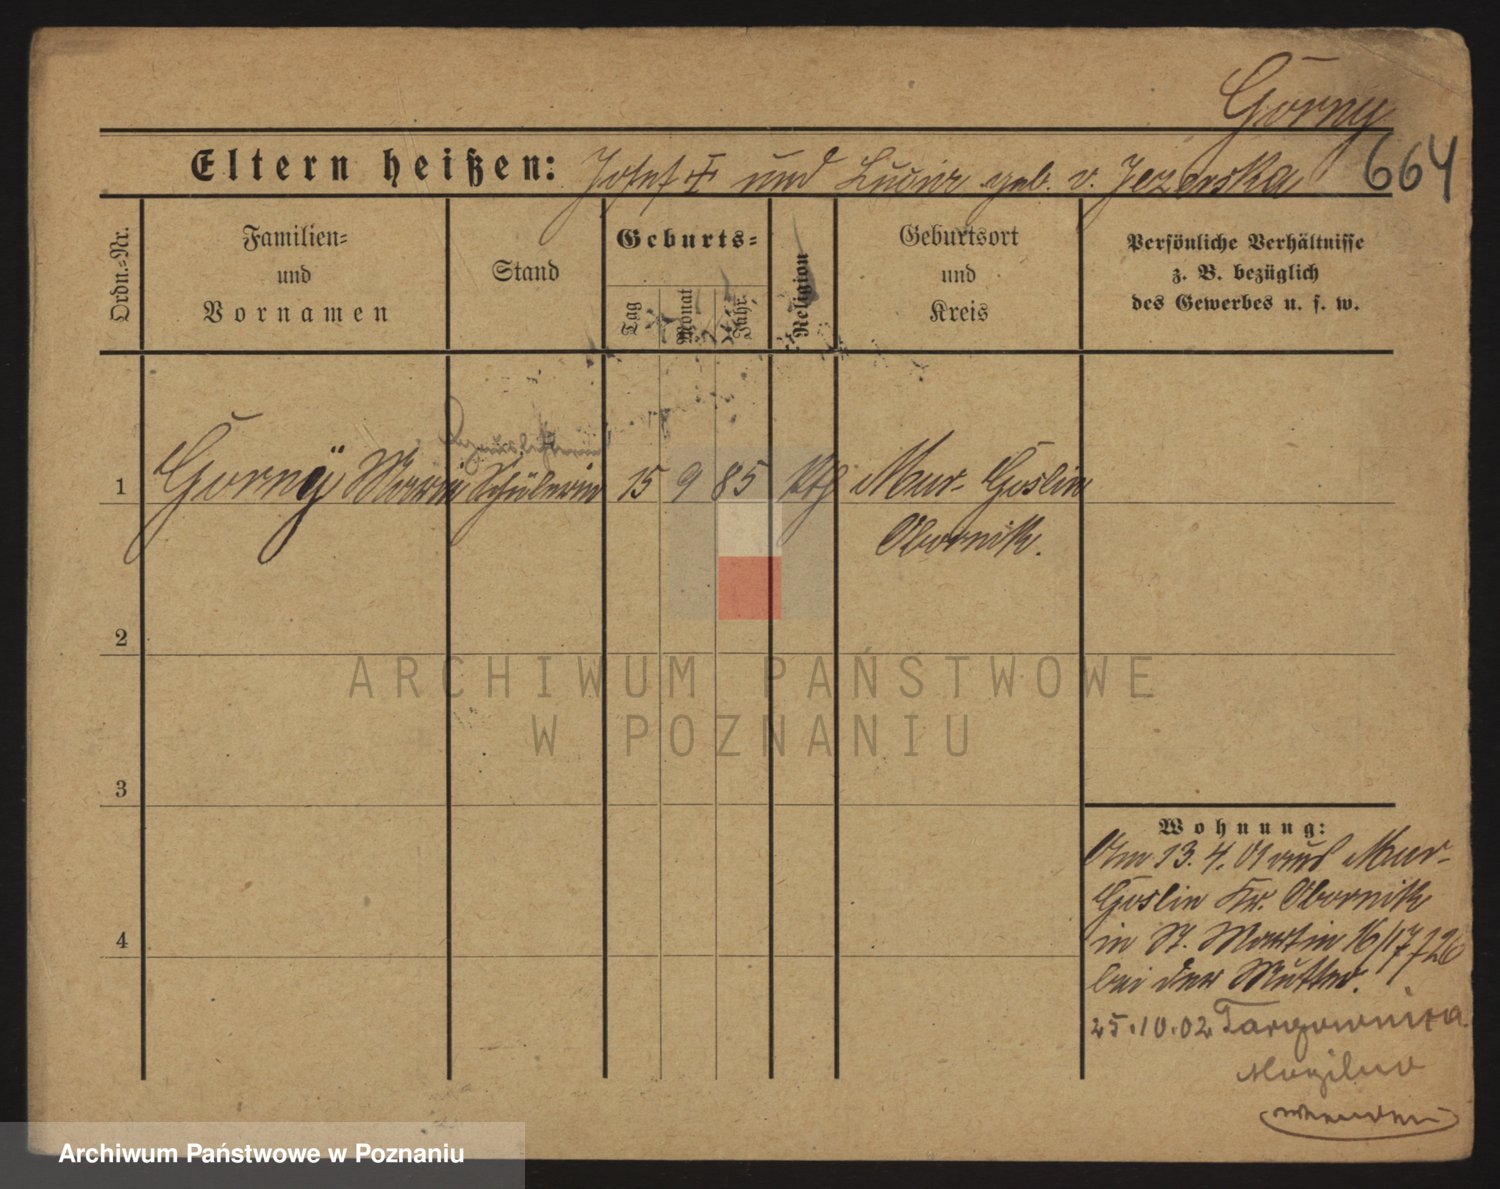 Górny
664
Eltern heißen: Josef † und Ludwi geb. v. Jezerska
Ordn.-Nr.
Familien-
und
Vornamen
Stand
Geburts-
Tag
Monat
Jahr.
Religion
Geburtsort
und
Kreis
Persönliche Verhältnisse
z. B. bezüglich
des Gewerbes u. s. w.
1 Gorny Marie Schülerin 15 9 85 kth Mur- Goslin
Obornik.
2
3
4
Wohnung:
Am 13. 4. 01 aus Mur-
Goslin Kr. Obornik
in St. Martin 16/17
bei der Mutter.
25.10.02 Targownica
Mogilno
ARCHIWUM PAŃSTWOWE
W POZNANIU
Archiwum Państwowe w Poznaniu